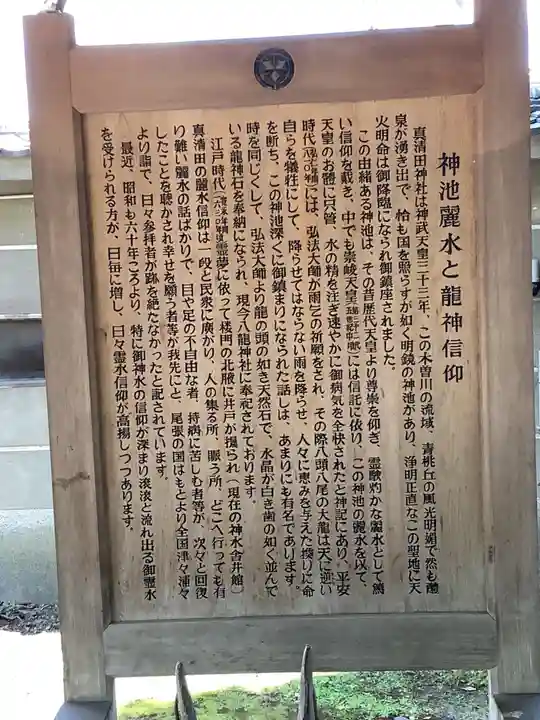 神池麗水と龍神信仰
真清田神社は神武天皇三十三年、この木曽川の流域、青桃丘の風光明媚で然も醴
泉が湧き出で、恰も国を照らすが如く明鏡の神池があり、浄明正直なこの聖地に天
火明命は御降臨になられ御鎮座されました。
この由緒ある神池は、その昔歴代天皇より尊崇を仰ぎ、霊験灼かな麗水として篤
い信仰を戴き、中でも崇峻天皇には信託に依り、この神池の麗水を以て、
天皇のお體に只管、水の精を注ぎ速やかに御病気を全快されたと神記にあり、平安
時代には、弘法大師が雨乞の祈願をされ、その際八頭八尾の大龍は天に逆い
自らを犠牲にして、降らせてはならない雨を降らせ、人々に恵みを与えた換りに命
を断ち、この神池深くに御鎮まりになられた話しは、あまりにも有名であります。
時を同じくして、弘法大師より龍の頭の如き天然石で、水晶が白き歯の如く並んで
いる龍神石を奉納になられ、現今八龍神社に奉祀されております。
江戸時代霊夢に依って楼門の北脇に井戸が掘られ（現在の神水舎井館）
真清田の麗水信仰は一段と民衆に廣がり、人の集る所、賑う所、どこへ行っても有
り難い麗水の話ばかりで、目や足の不自由な者、持病に苦しむ者等が、次々と回復
したことを聴かされ幸せを願う者等が我先にと、尾張の国はもとより全国津々浦々
より詣で、日々参拝者が跡を絶たなかったと記されています。
最近、昭和も六十年ごろより、特に御神水の信仰が深まり滾滾と流れ出る御霊水
を受けられる方が、日毎に増し、日々霊水信仰が高揚しつつあります。